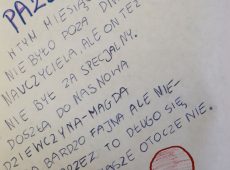 PAŹ
W TYM MIESIĄ
NIE BYŁO POZA DN
NAUCZYCIELA, ALE ON TEŻ
NIE BYŁ ZA SPECJALNY.
DOSZŁA DO NAS NOWA
DZIEWCZYNA-MAGDA
BARDZO FAJNA ALE NIE-
PRZEZ TO DŁUGO SIĘ
NASZE OTOCZENIE.